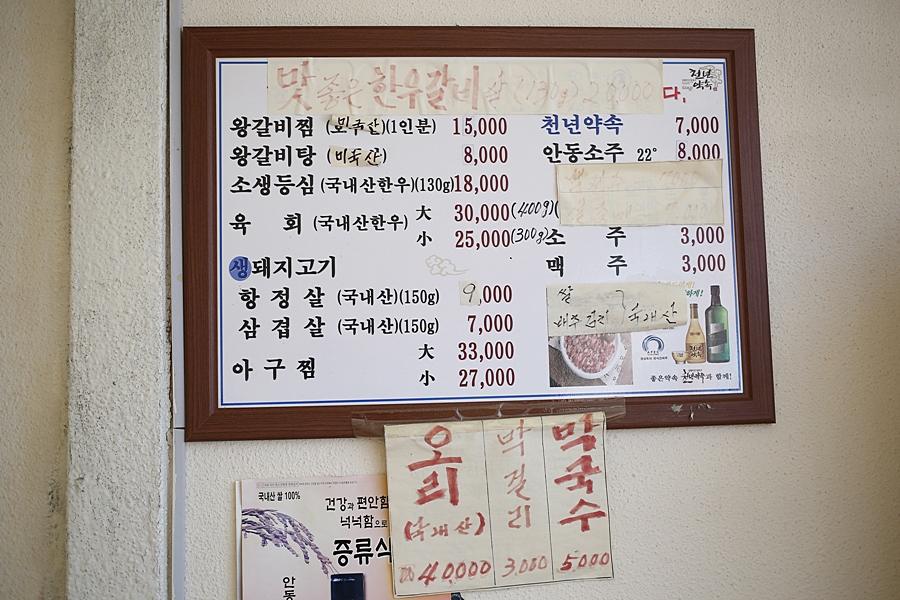 맛좋은 한우갈비살 (130g) 20,000
천년약속
다.
왕갈비찜 (미국산)(1인분) 15,000
왕갈비탕 (미국산) 8,000
소생등심 (국내산한우)(130g) 18,000
육 회 (국내산한우) 大 30,000 (400g)
小 25,000 (300g)
생돼지고기
항정살 (국내산)(150g) 9,000
삼겹살 (국내산)(150g) 7,000
아구찜 大 33,000
小 27,000
천년약속 7,000
안동소주 22° 8,000
소 주 3,000
맥 주 3,000
쌀
배추김치 국내산
좋은약속 천년약속과 함께!
오리 (국내산) 40,000
막걸리 3,000
막국수 5,000
국내산 쌀 100%
건강과 편안함
넉넉함으로
증류식
안동